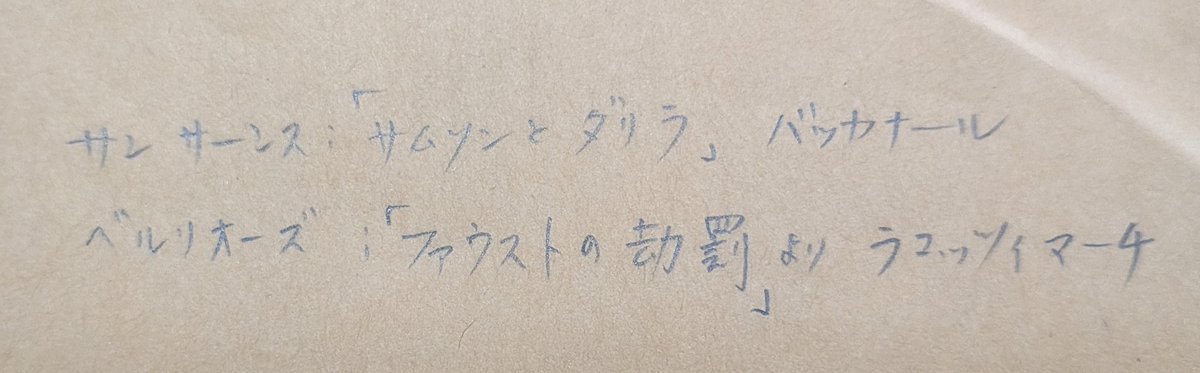 サン サーンス：「サムソンと ダリラ」 バッカナール
ベルリオーズ：「ファウストの 劫罰」より ラコッツィマーチ